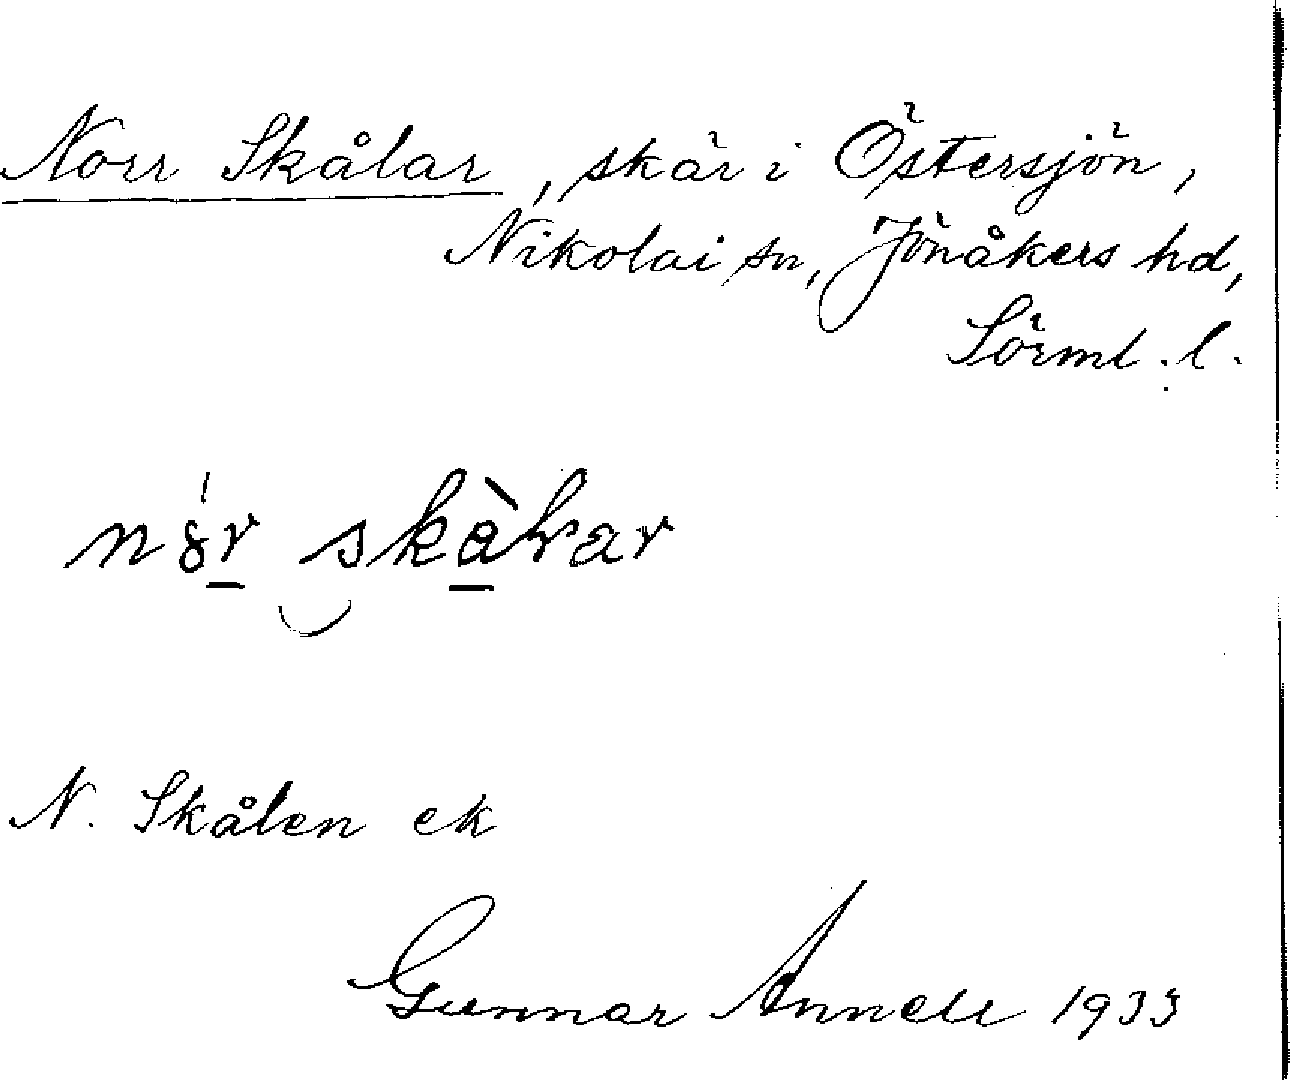 Norr Skålar, skär i Östersjön,
Nikolai sn, Jönåkers hd,
Sörml. l.
N. Skålen ek
Gunnar Annell 1933